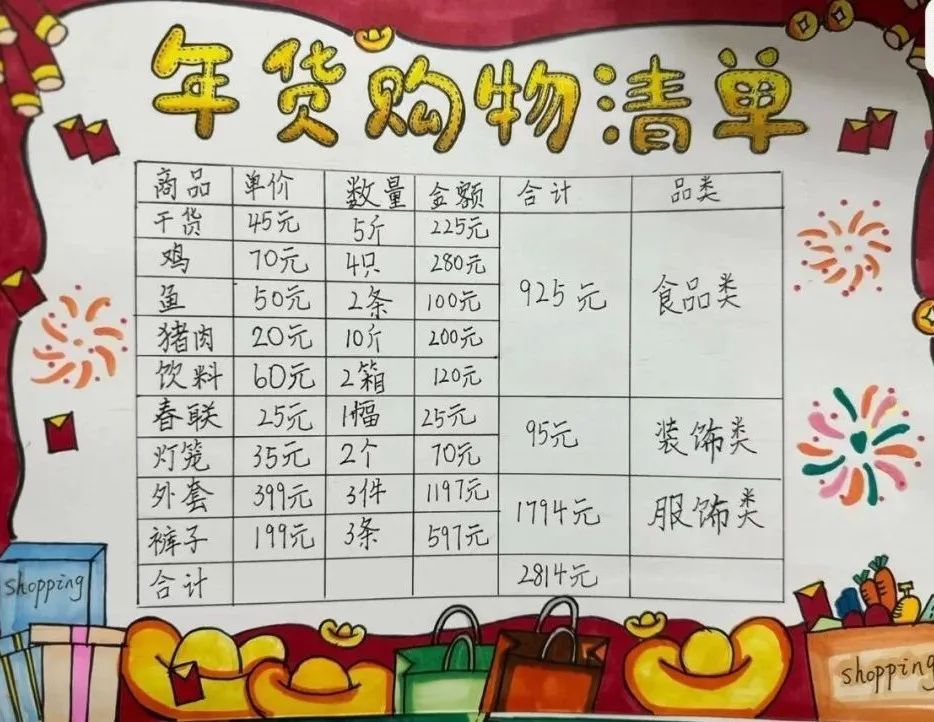 年货购物清单
商品 单价 数量 金额 合计 品类
干货 45元 5斤 225元
鸡 70元 4只 280元
鱼 50元 2条 100元 925元 食品类
猪肉 20元 10斤 200元
饮料 60元 2箱 120元
春联 25元 1幅 25元 95元 装饰类
灯笼 35元 2个 70元
外套 399元 3件 1197元 1794元 服饰类
裤子 199元 3条 597元
合计 2814元
shopping
shopping